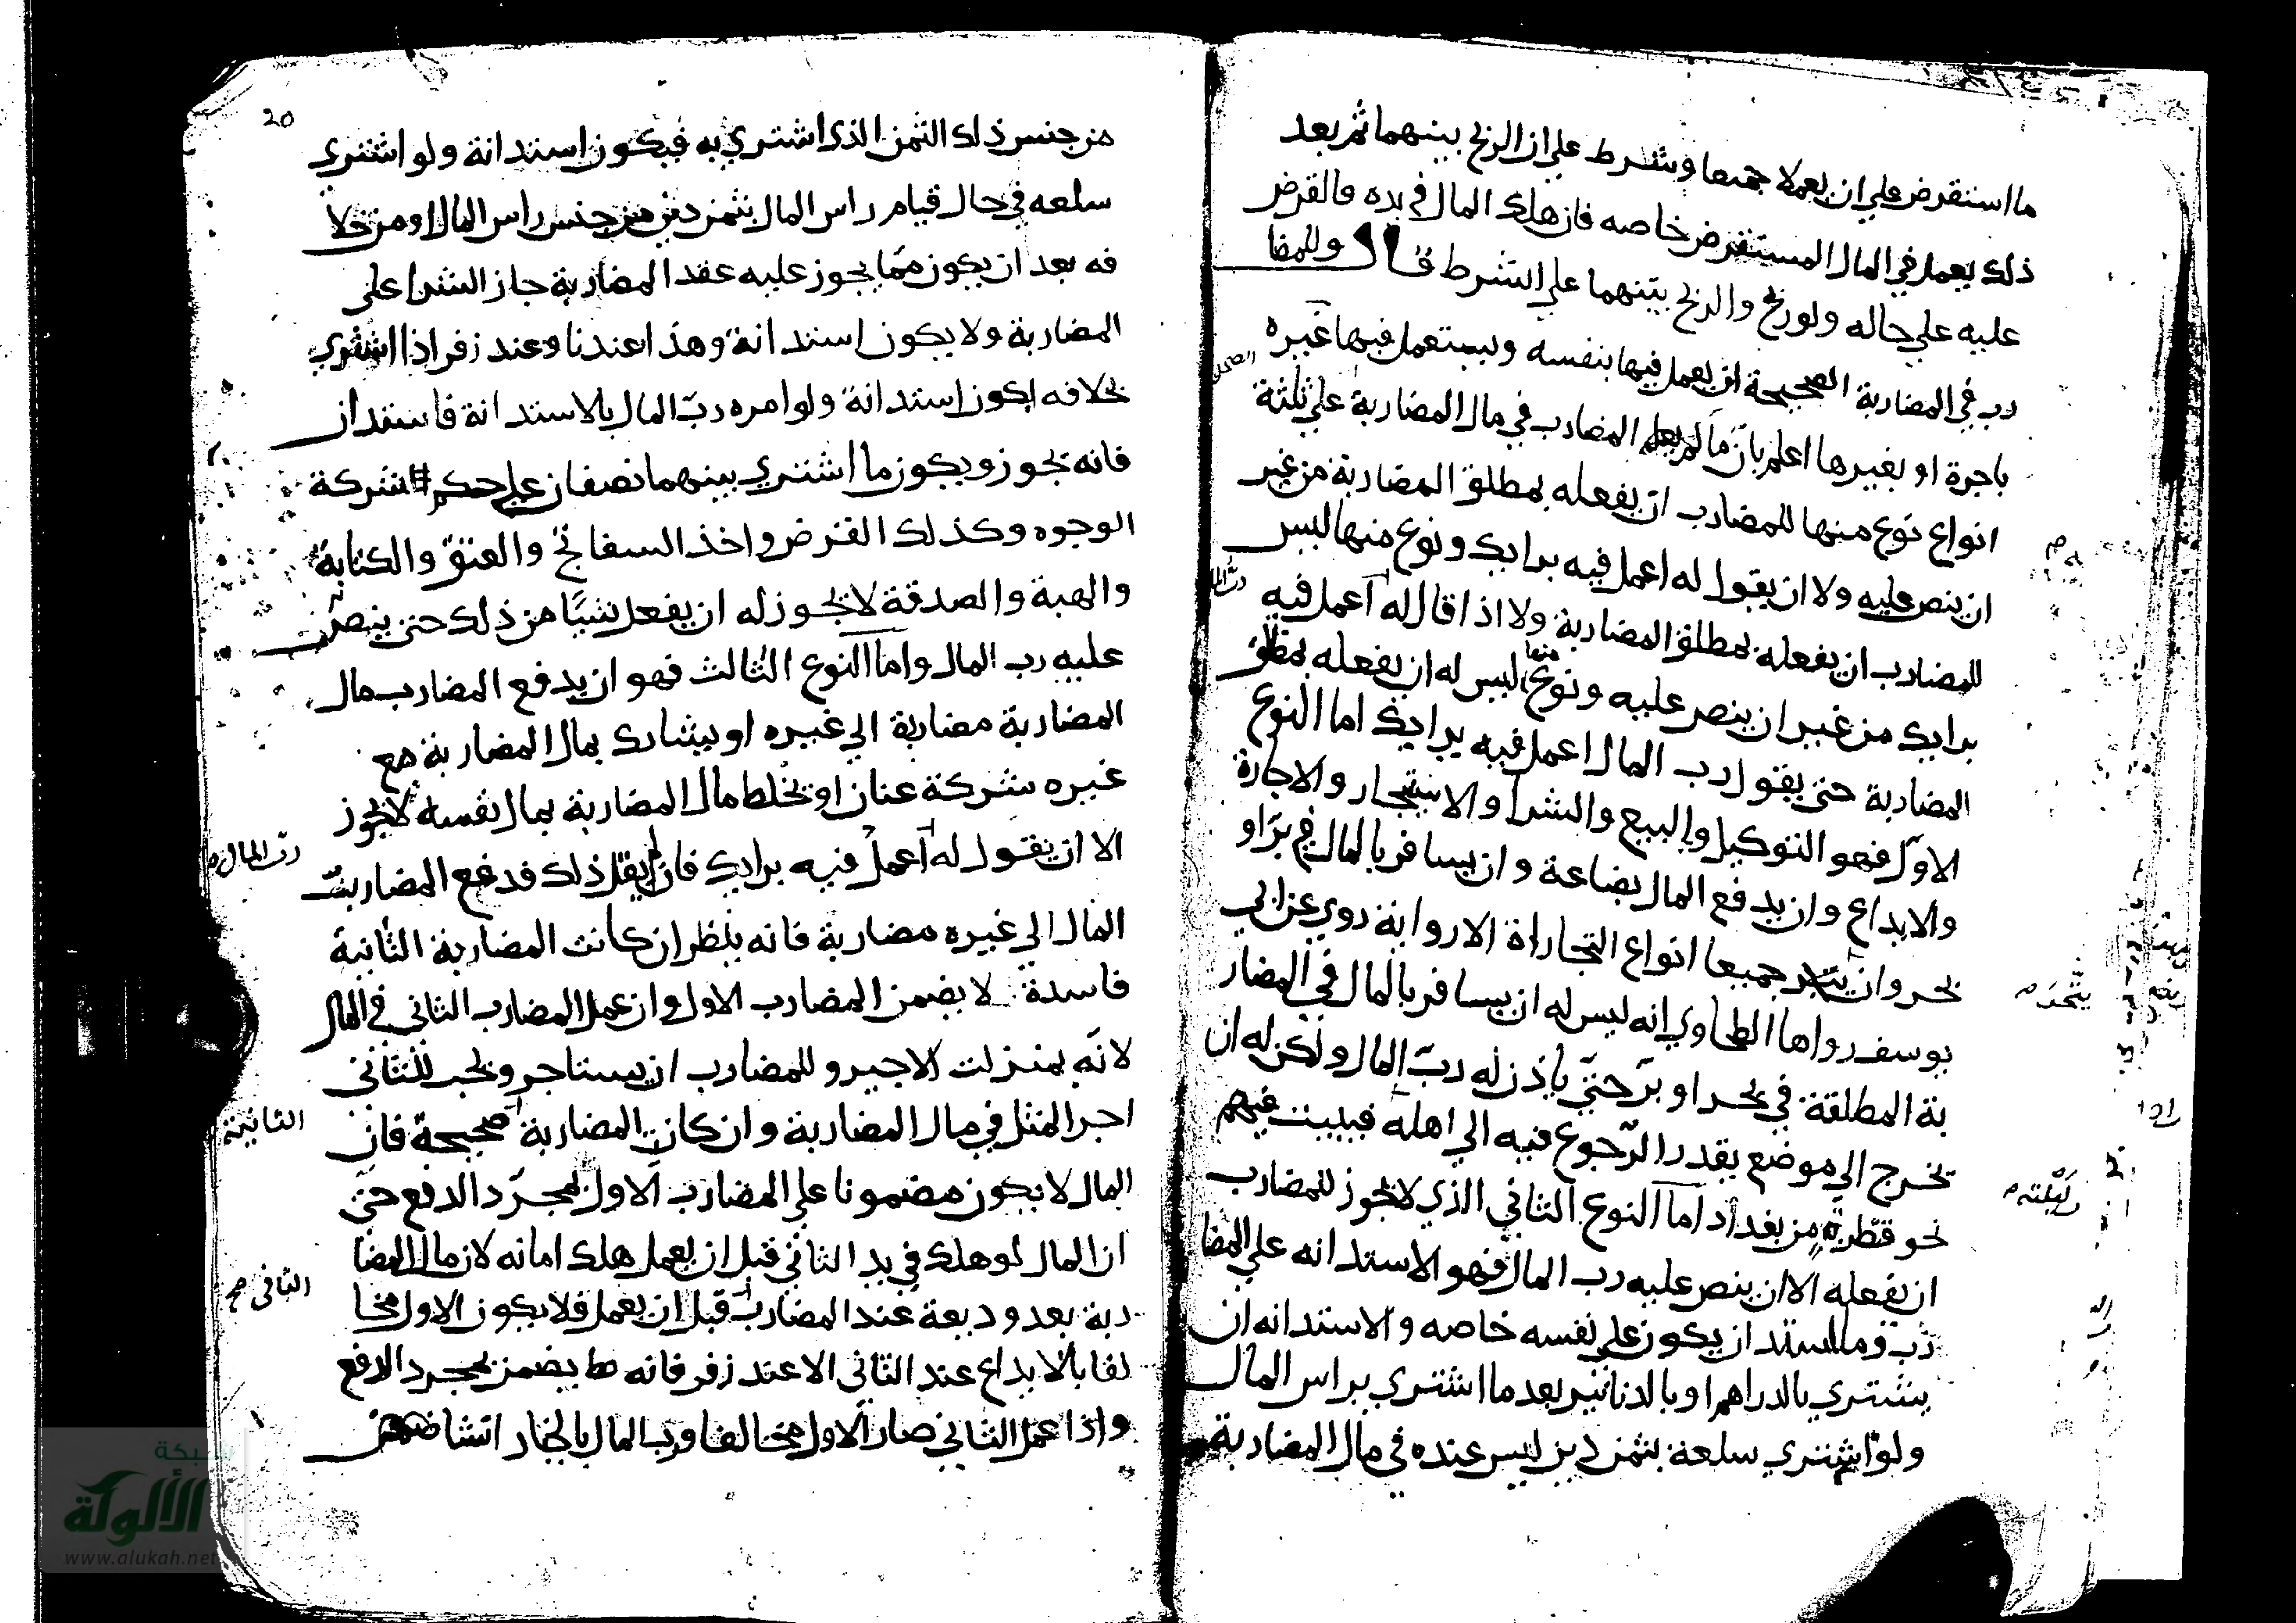 ما استقرض علي ان يعملا جميعا وشرط علي ان الربح بينهما ثم بعد
ذلك يعمل في المال المستقرض خاصه فان هلك المال في يده فالقرض
عليه علي حاله ولو ربح والربح بينهما علي الشرط قال وللمضا
رب في المضاربة الصحيحة ان يعمل فيها بنفسه ويستعمل فيها غيره
باجرة او بغيرها اعلم بان ما المضارب في مال المضاربة علي ثلثة
انواع نوع منها للمضارب ان يفعله بمطلق المضاربة من غير
ان ينص عليه ولا ان يقول له اعمل فيه برايك ونوع منها ليس
للمضارب ان يفعله بمطلق المضاربة ولا اذا قال له اعمل فيه
رب المال
برايك من غير ان ينص عليه ونوع منها ليس له ان يفعله بمطلق
المضاربة حتى يقول رب المال اعمل فيه برايك اما النوع
الاول فهو التوكيل والبيع والشرا والاستيجار والاجارة
والايداع وان يدفع المال بضاعة وان يسافر بالمال في بر او
بحر وان يتجر جميعا انواع التجاراة الا رواية روي عن ابي
يوسف رواها الطحاوي انه ليس له ان يسافر بالمال في المضار
بة المطلقة في بحر او بر حتى ياذن له رب المال ولكن له ان
يخرج الي موضع يقدر الرجوع فيه الي اهله فيبيت فيهم
ليلته
نحو قطربة من بغداد اما النوع الثاني الذي لا يجوز للمضارب
ان يفعله الا ان ينص عليه رب المال فهو الاستدانه علي المضا
رب وما استدان يكون علي نفسه خاصه والاستدانه ان
يشتري بالدراهم او بالدنانير بعد ما اشتري براس المال
ولو اشتري سلعة بثمن دين ليس عنده في مال المضاربة
20
من جنس ذلك الثمن الذي اشتري به فيكون استدانة ولو اشتري
سلعه في حال قيام راس المال بثمن دين من جنس راس المال او من خلا
فه بعد ان يكون مما يجوز عليه عقد المضاربة جاز الشرا علي
المضاربة ولا يكون استدانة وهذا عندنا وعند زفر اذا اشتري
بخلافه يكون استدانة ولو امره رب المال بالاستدانة فاستدان
فانه يجوز ويكون ما اشتري بينهما نصفان علي حكم شركة
الوجوه وكذلك القرض واخذ السفاتج والعتق والكتابة
والهبة والصدقة لا يجوز له ان يفعل شيا من ذلك حتى ينص
عليه رب المال واما النوع الثالث فهو ان يدفع المضارب مال
المضاربة مضاربة الي غيره او يشارك بمال المضاربة مع
غيره شركة عنان او يخلط مال المضاربة بمال نفسه لا يجوز
الا ان يقول له اعمل فيه برايك فان لم يقل ذلك فدفع المضارب
رب المال
المال الي غيره مضاربة فانه ينظر ان كانت المضاربة الثانية
فاسدة لا يضمن المضارب الاول وان عمل المضارب الثاني في المال
لانه بمنزلت الاجير وللمضارب ان يستاجر ويجب للثاني
اجر المثل في مال المضاربة وان كان المضاربة صحيحة فان
الثانية
المال لا يكون مضمونا علي المضارب الاول بمجرد الدفع حتى
ان المال لو هلك في يد الثاني قبل ان يعمل هلك امانه لان مال المضا
ربة بعد وديعة عند المضارب قبل ان يعمل فلا يكون الاول مخا
الثاني صح
لفا بالايداع عند الثاني الا عند زفر فانه يضمن بمجرد الدفع
واذا عمل الثاني صار الاول مخالفا ورب المال بالخيار ان شا ضمن
شبكة
الألوكة
www.alukah.net